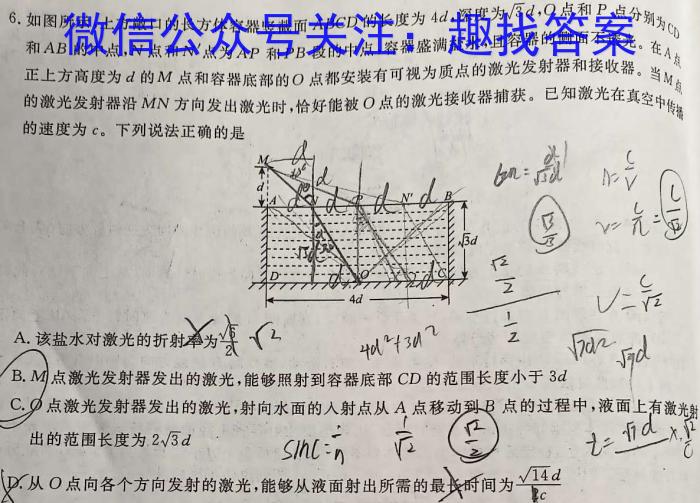 6. 如图所 上方敞口的长方体容器竖截面 ABCD 的长度为 4d, 深度为√3d, O 点和 P 点分别为CD
和 AB 的 点, 点和N′点为 AP 和PB 段的中点 容器盛满 水,且容器的侧面不 光。在A点
正上方高度为 d 的 M 点和容器底部的O 点都安装有可视为质点的激光发射器和接收器。当M点
的激光发射器沿 MN 方向发出激光时,恰好能被 O 点的激光接收器捕获。已知激光在真空中传播
的速度为 c。下列说法正确的是
微信公众号关注:趣找答案
M d
d
A d N d P d N′ d B
√3d
D d O d C
4d
tan=
n=c/V
√3/3
v=c/n=c/√2
√2/2
1/2
V=c/√2
A. 该盐水对激光的折射率为√6/2 √2
4d²+3d²
√7d² √7d
B. M 点激光发射器发出的激光,能够照射到容器底部 CD 的范围长度小于 3d
C. O 点激光发射器发出的激光,射向水面的入射点从 A 点移动到 B 点的过程中,液面上有激光射
出的范围长度为 2√3d
sinC=1/n 1/√2 √2/2
t=√7d × √2/c
D. 从 O 点向各个方向发射的激光,能够从液面射出所需的最长时间为 √14d/2c